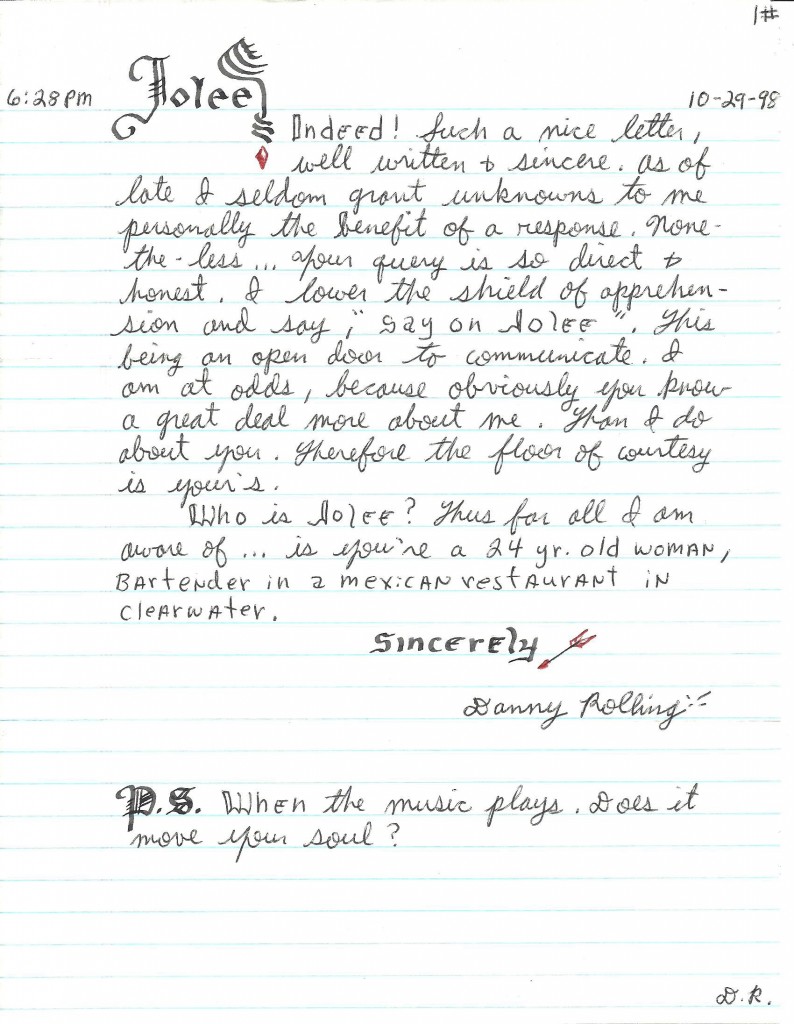 1#
6:28pm Jolee 10-29-98
Indeed! Such a nice letter,
well written & sincere. As of
late I seldom grant unknowns to me
personally the benefit of a response. None-
the-less... your query is so direct &
honest. I lower the shield of apprehen-
sion and say; "Say on Jolee". This
being an open door to communicate. I
am at odds, because obviously you know
a great deal more about me. Than I do
about you. Therefore the floor of courtesy
is your's.
Who is Jolee? Thus far all I am
aware of... is you're a 24 yr. old woman,
Bartender in a mexican restaurant in
Clearwater.
Sincerely
Danny Rolling
P.S. When the music plays. Does it
move your soul?
D.R.